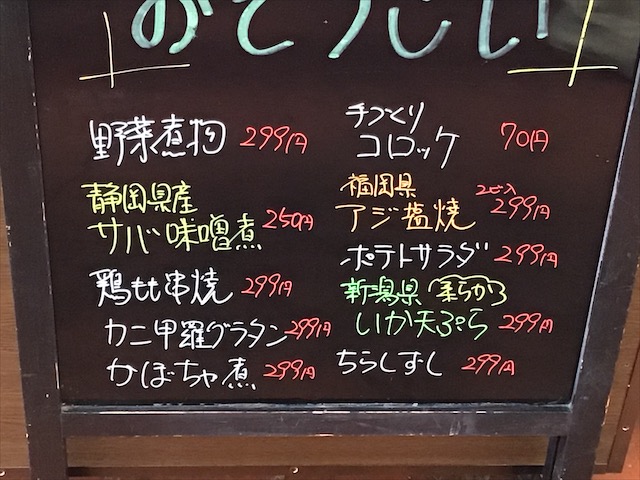 おそうじい
野菜煮物 299円
静岡県産
サバ味噌煮 250円
鶏もも串焼 299円
カニ甲羅グラタン 299円
かぼちゃ煮 299円
手づくり
コロッケ 70円
福岡県 2ピ入
アジ塩焼 299円
ポテトサラダ 299円
新潟県 柔らか
いか天ぷら 299円
ちらしすし 299円